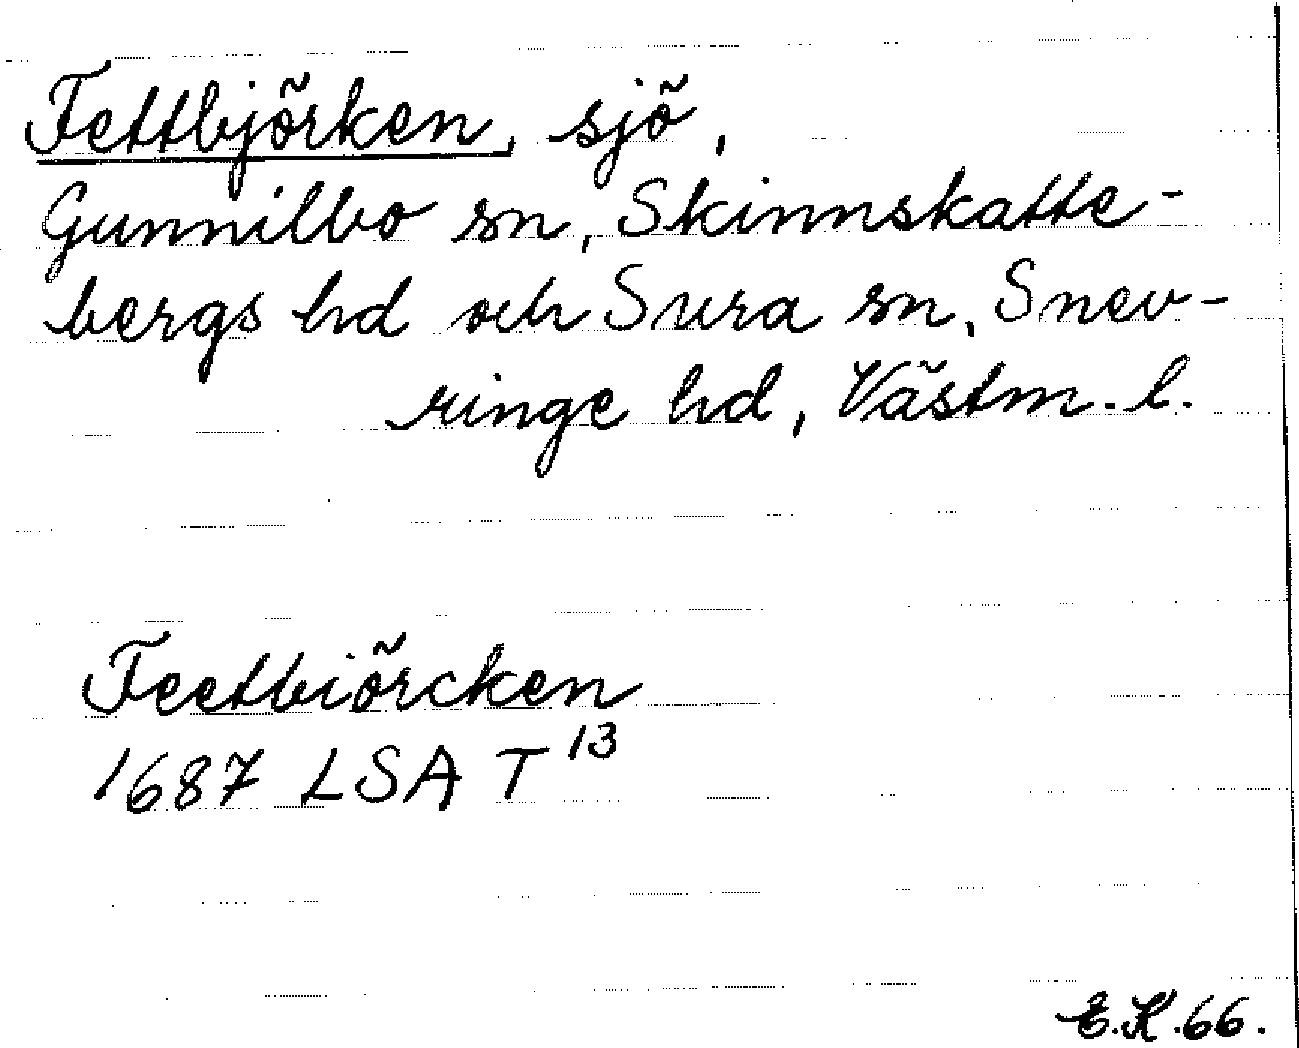 Fettbjörken, sjö,
Gunnilbo sn, Skinnskatte-
bergs hd och Sura sn, Snev-
ringe hd, Västm. l.
Feetbiörcken
1687 LSA T 13
E.K.66.